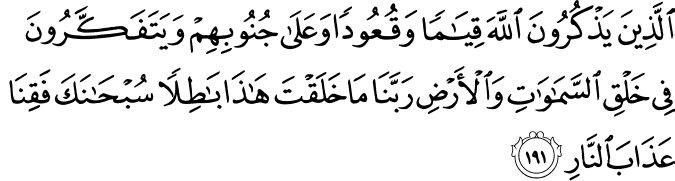 ٱلَّذِينَ يَذْكُرُونَ ٱللَّهَ قِيَـٰمًا وَقُعُودًا وَعَلَىٰ جُنُوبِهِمْ وَيَتَفَكَّرُونَ
فِى خَلْقِ ٱلسَّمَـٰوَٰتِ وَٱلْأَرْضِ رَبَّنَا مَا خَلَقْتَ هَـٰذَا بَـٰطِلًا سُبْحَـٰنَكَ فَقِنَا
عَذَابَ ٱلنَّارِ ١٩١